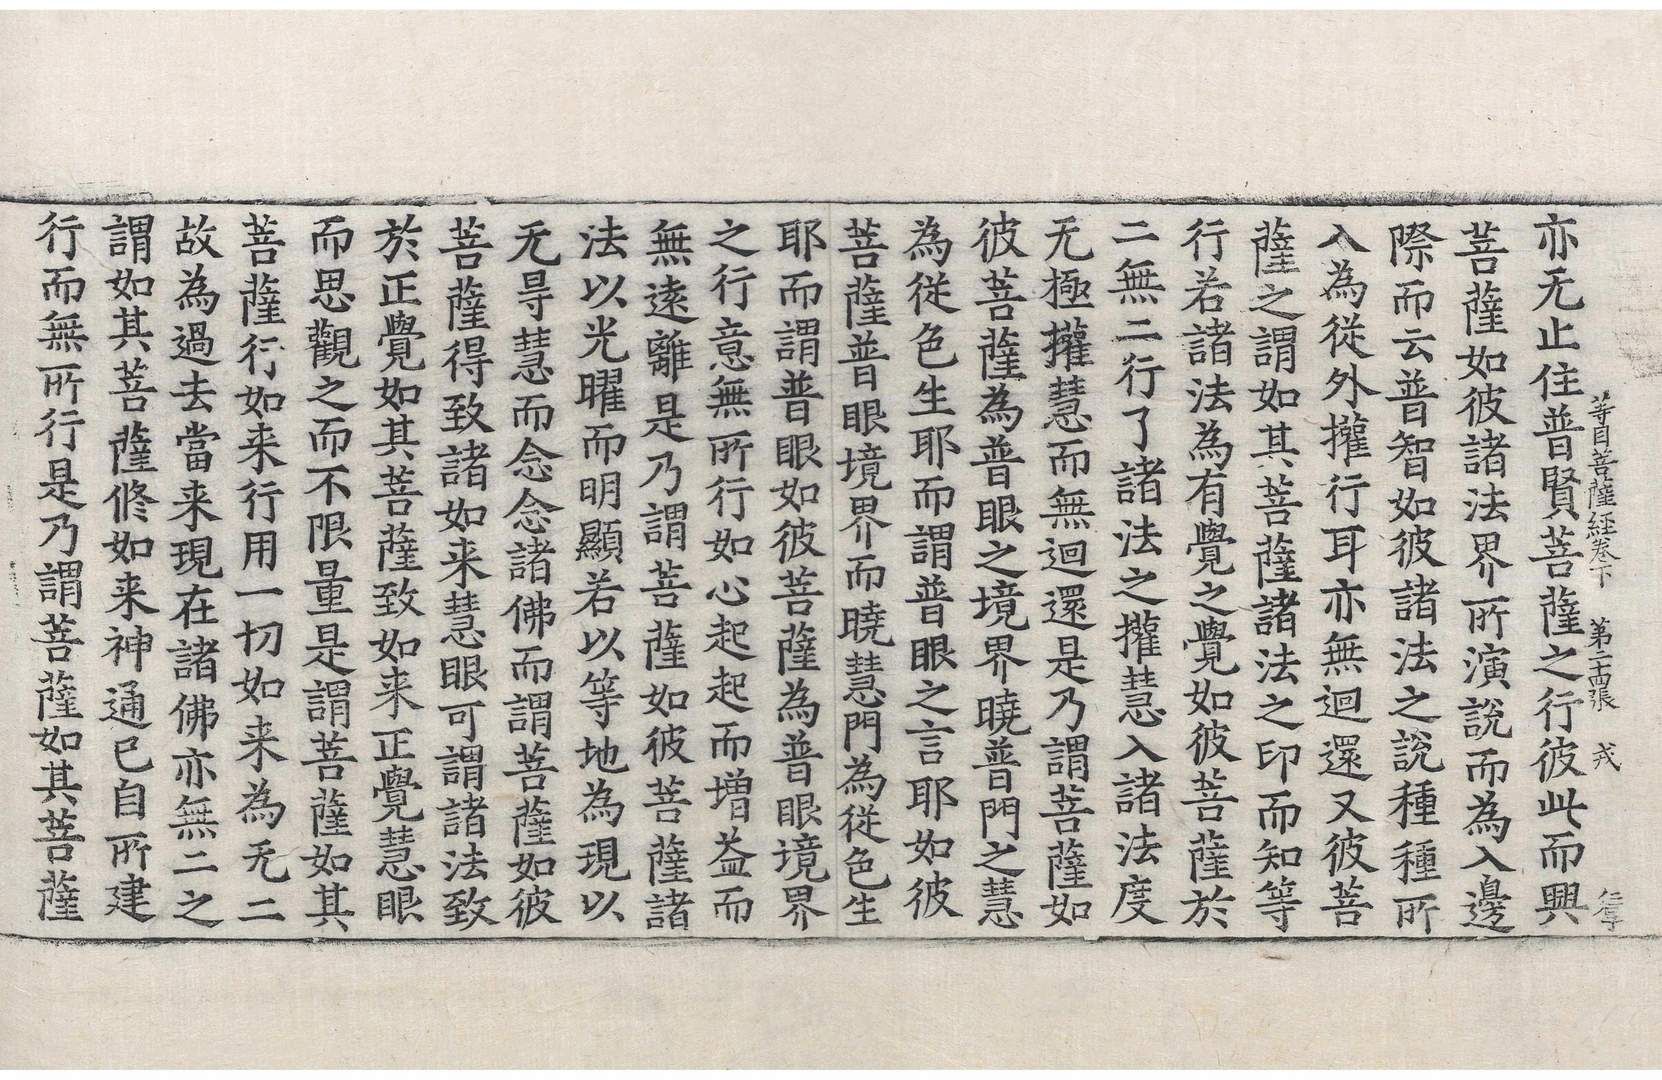 等目菩薩經卷下 第二十四張 戎
亦无止住普賢菩薩之行彼此而興
菩薩如彼諸法界所演說而為入邊
際而云普智如彼諸法之說種種所
入為從外攉行耳亦無迴還又彼菩
薩之謂如其菩薩諸法之印而知等
行若諸法為有覺之覺如彼菩薩於
二無二行了諸法之攉慧入諸法度
无極攉慧而無迴還是乃謂菩薩如
彼菩薩為普眼之境界曉普門之慧
為從色生耶而謂普眼之言耶如彼
菩薩普眼境界而曉慧門為從色生
耶而謂普眼如彼菩薩為普眼境界
之行意無所行如心起起而增益而
無遠離是乃謂菩薩如彼菩薩諸
法以光曜而明顯若以等地為現以
无㝵慧而念念諸佛而謂菩薩如彼
菩薩得致諸如来慧眼可謂諸法致
於正覺如其菩薩致如来正覺慧眼
而思觀之而不限量是謂菩薩如其
菩薩行如来行用一切如来為无二
故為過去當来現在諸佛亦無二之
謂如其菩薩修如来神通已自所建
行而無所行是乃謂菩薩如其菩薩